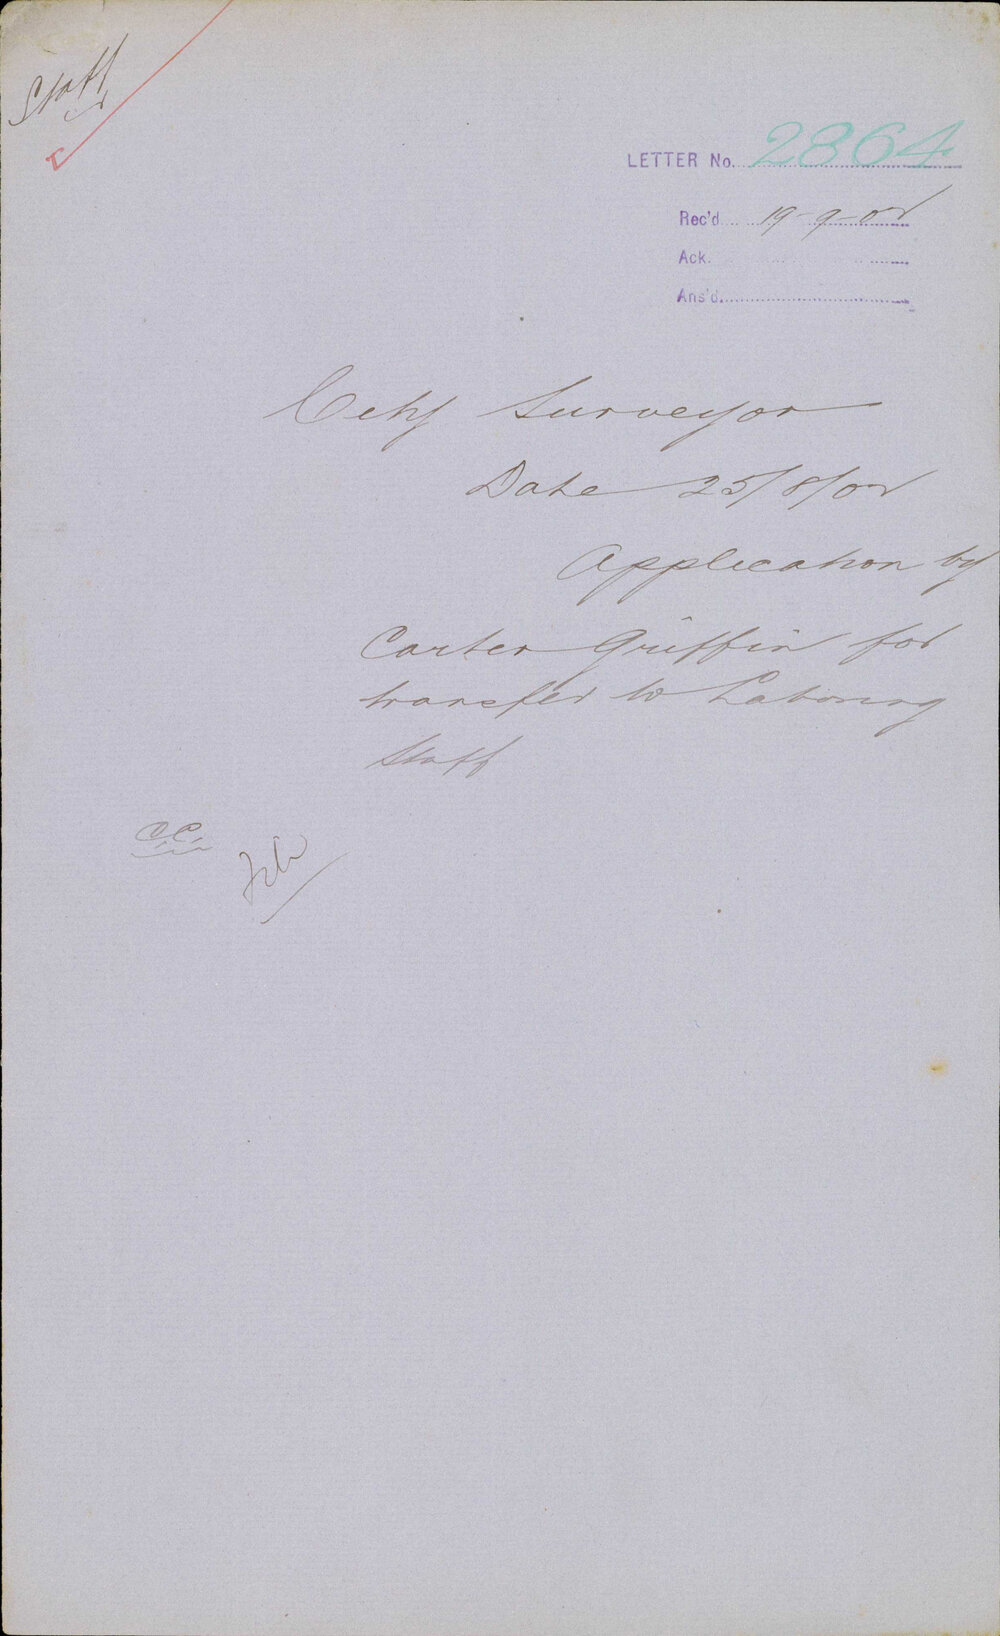 Staff
LETTER No. 2864
Rec'd 19-9-02
Ack.
Ans'd.
City Surveyor
Date 25/8/02
Application by
Carter Griffin for
transfer to Laboring
Staff
C.C.